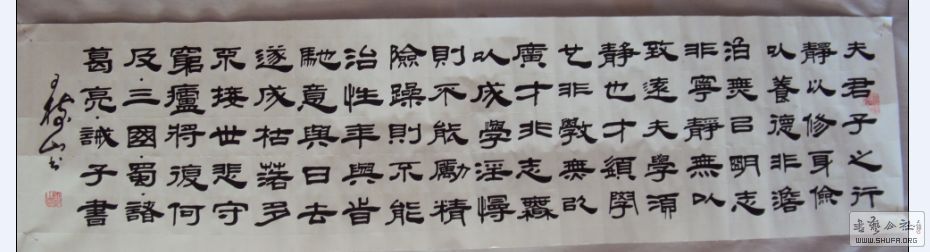 夫君子之行
靜以修身儉
以養德非澹
泊無以明志
非寧靜無以
致遠夫學須
靜也才須學
也非學無以
廣才非志無
以成學淫慢
則不能勵精
險躁則不能
治性年與時
馳意與日去
遂成枯落多
不接世悲守
窮廬將復何
及三國蜀諸
葛亮誡子書
山书
書藝公社
WWW.SHUFA.ORG